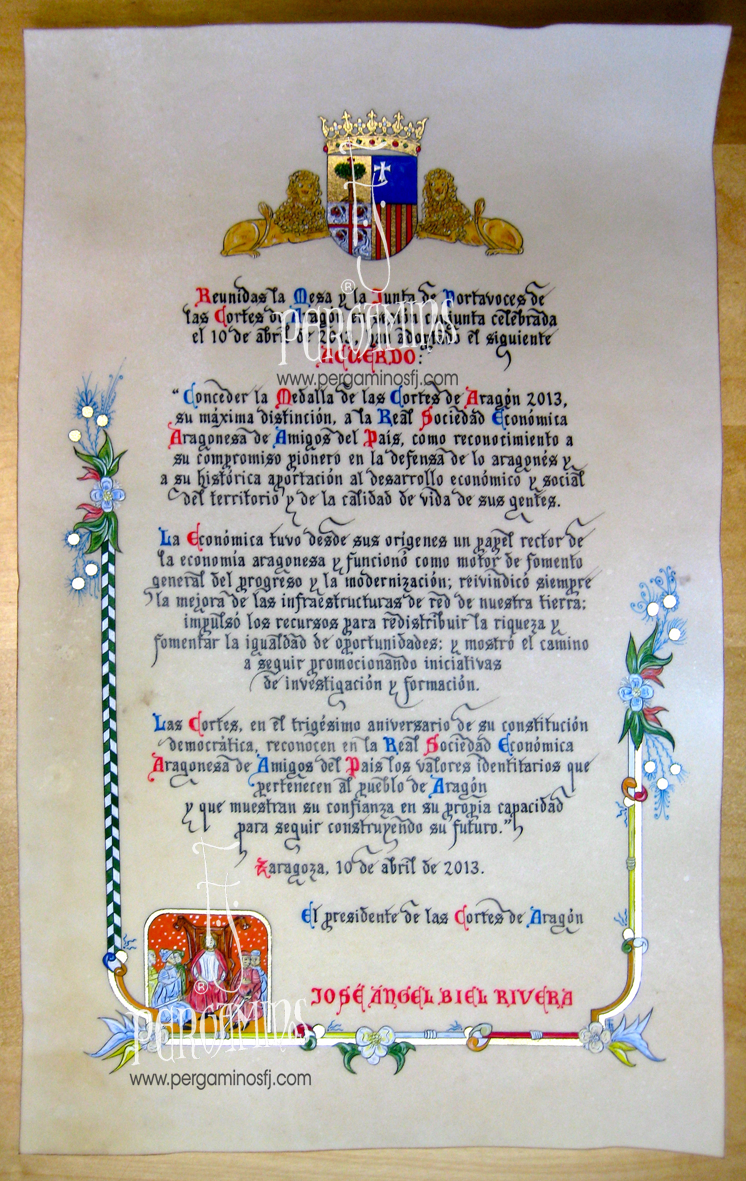 Reunidas la Mesa y la Junta de Portavoces de
las Cortes de Aragón en sesión conjunta celebrada
el 10 de abril de 2013, han adoptado el siguiente
ACUERDO:
PERGAMINS
®
www.pergaminosfj.com
“Conceder la Medalla de las Cortes de Aragón 2013,
su máxima distinción, a la Real Sociedad Económica
Aragonesa de Amigos del País, como reconocimiento a
su compromiso pionero en la defensa de lo aragonés y
a su histórica aportación al desarrollo económico y social
del territorio y de la calidad de vida de sus gentes.
La Económica tuvo desde sus orígenes un papel rector de
la economía aragonesa y funcionó como motor de fomento
general del progreso y la modernización; reivindicó siempre
la mejora de las infraestructuras de red de nuestra tierra;
impulsó los recursos para redistribuir la riqueza y
fomentar la igualdad de oportunidades; y mostró el camino
a seguir promocionando iniciativas
de investigación y formación.
Las Cortes, en el trigésimo aniversario de su constitución
democrática, reconocen en la Real Sociedad Económica
Aragonesa de Amigos del País los valores identitarios que
pertenecen al pueblo de Aragón
y que muestran su confianza en su propia capacidad
para seguir construyendo su futuro.”
Zaragoza, 10 de abril de 2013.
El presidente de las Cortes de Aragón
JOSÉ ÁNGEL BIEL RIVERA
®
PERGAMINS
www.pergaminosfj.com